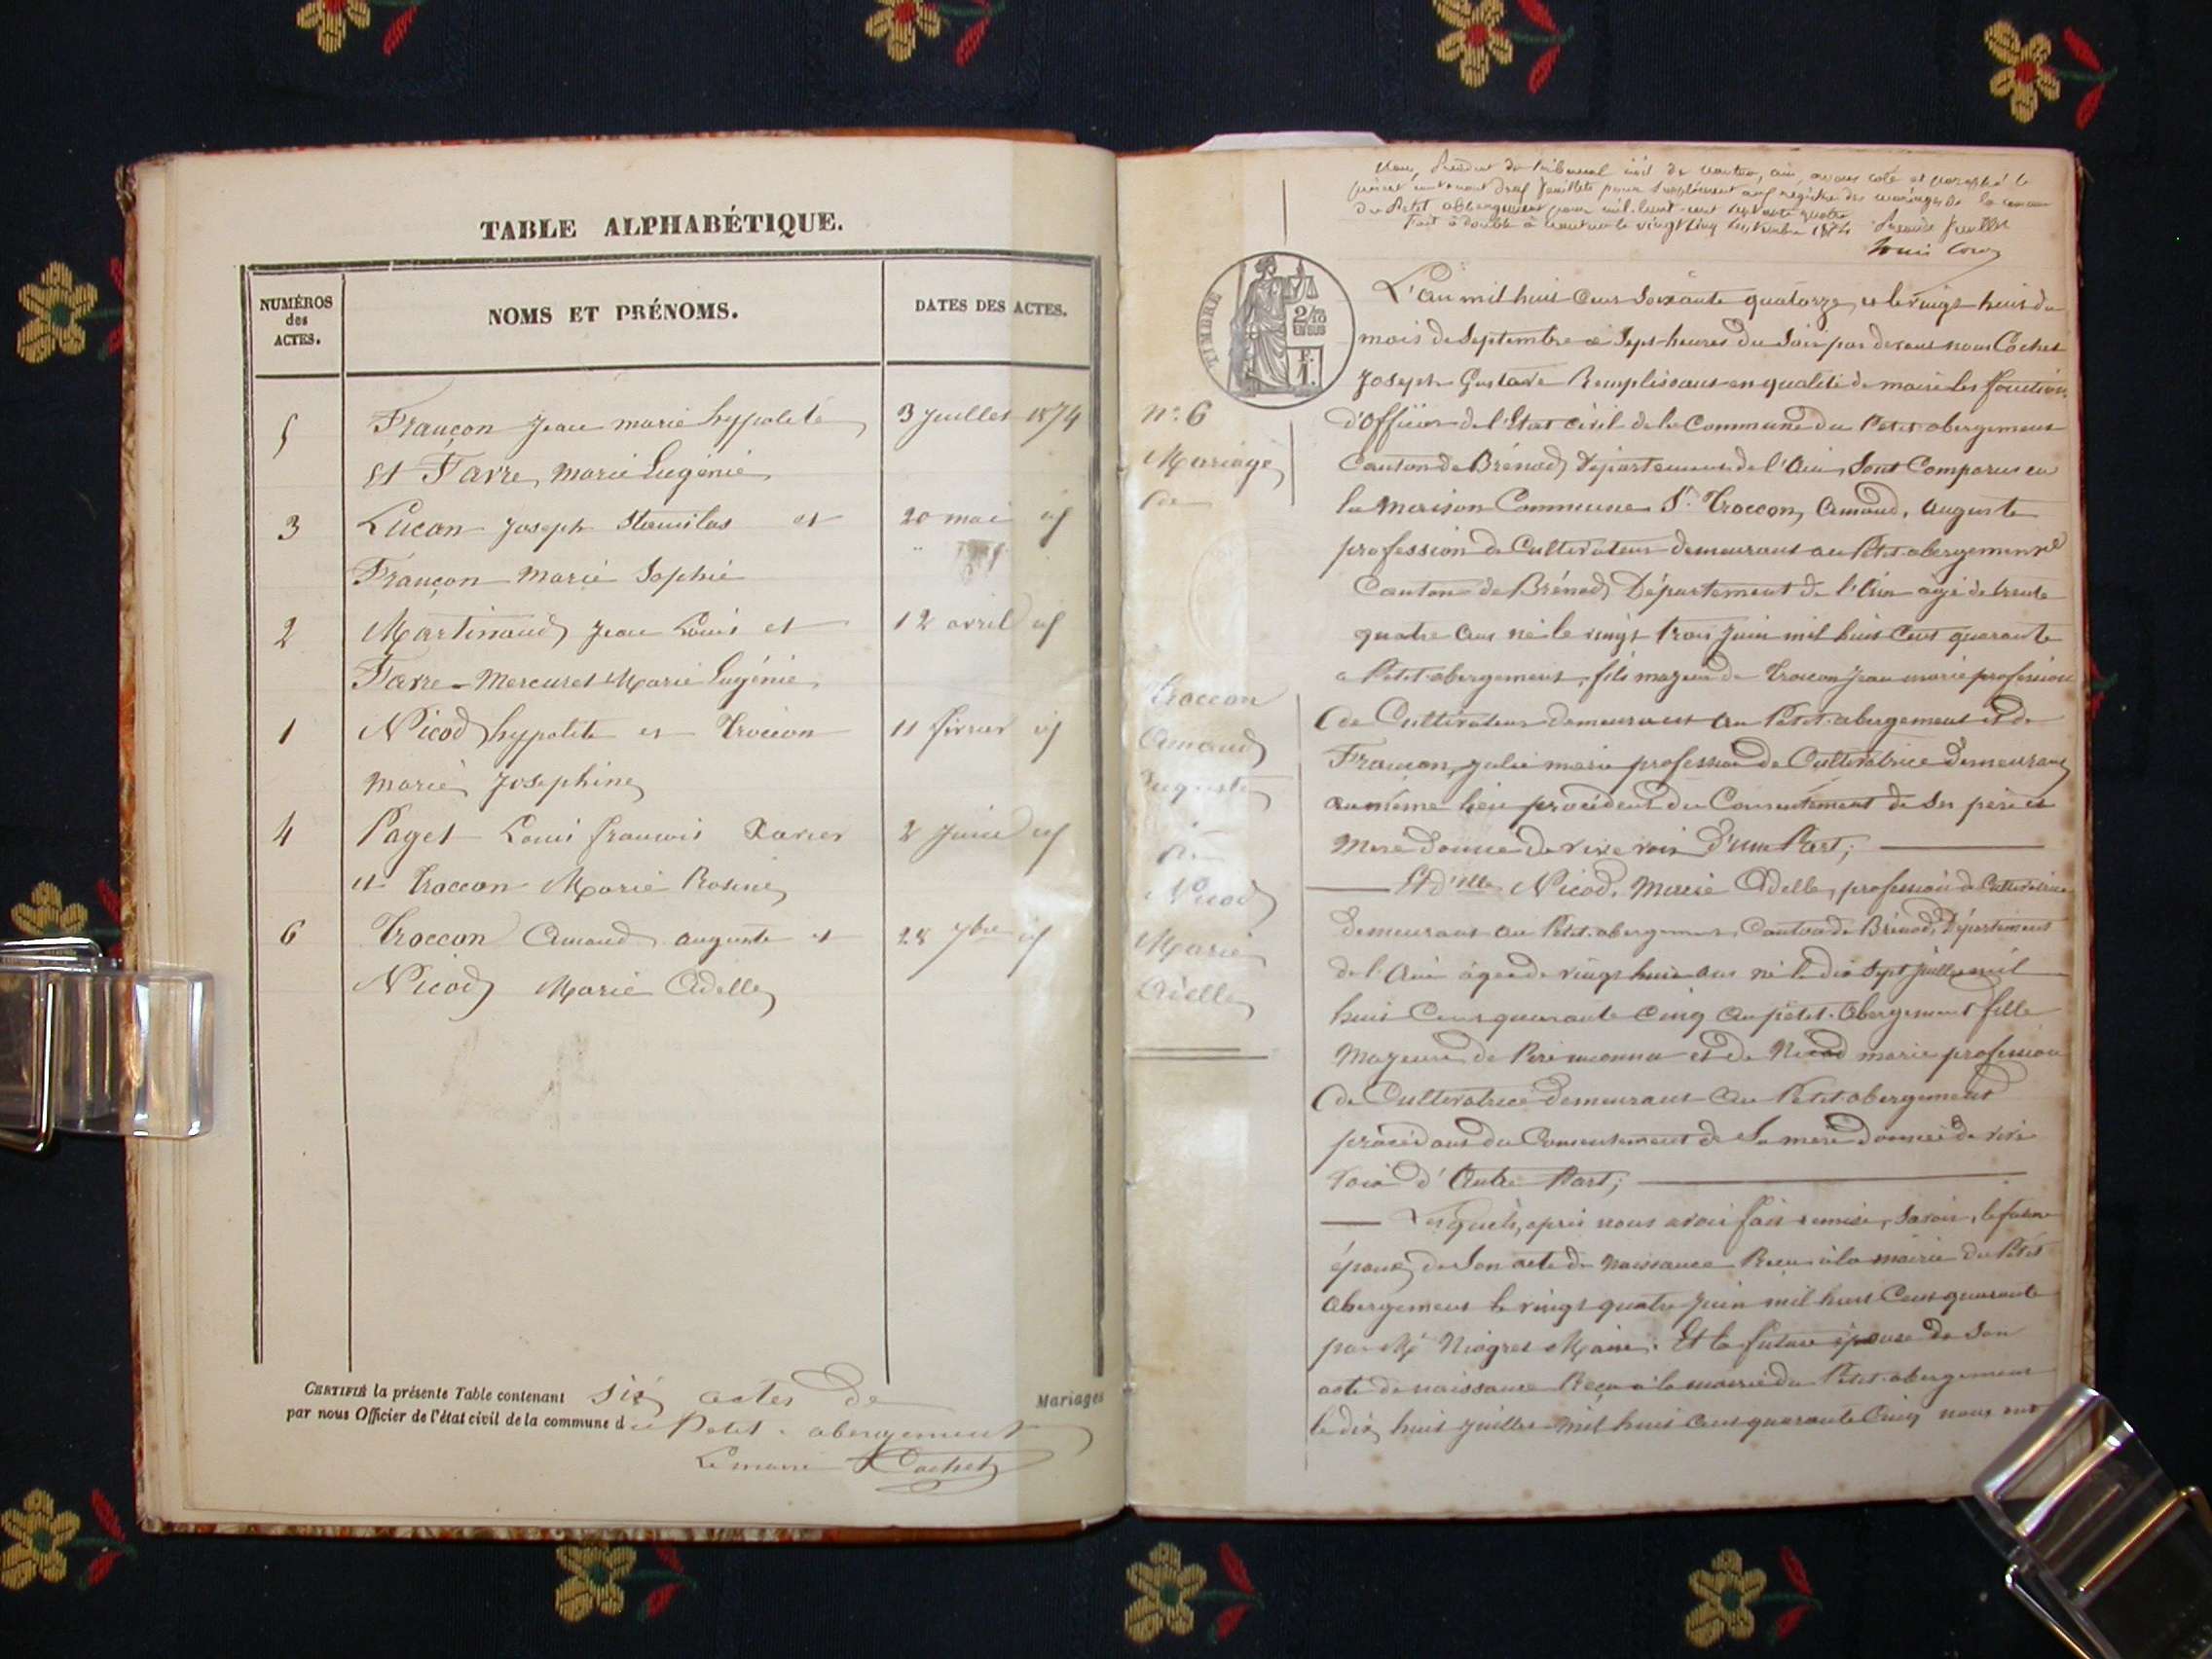 TABLE ALPHABÉTIQUE.
NUMÉROS des ACTES.
NOMS ET PRÉNOMS.
DATES DES ACTES.
5 Françon Jean marie hypolite 3 Juillet 1874
et Favre, Marie Eugénie
3 Lucan Joseph Stanislas et 20 mai id
Françon Marie Sophie
2 Martinaud Jean Louis et 12 avril id
Favre-Mercuret Marie Eugénie,
1 Nicod hypolite et Troccon 11 février id
Marie Josephine
4 Paget Louis francois Xavier 2 Juin id
et Troccon Marie Rosine
6 Troccon Amand auguste et 28 7bre id
Nicod Marie Adelle
CERTIFIÉ la présente Table contenant six actes de Mariages
par nous Officier de l'état civil de la commune du Petit-abergement
Le maire Cochet
Nous, Président du Tribunal civil de Nantua, ain, avons coté et paraphé le
présent contenant deux feuillets pour supplément aux registres des mariages de la commune
du Petit abbergement pour mil-huit-cent septante quatre
Fait à double à Nantua le vingt cinq septembre 1874 Premier feuillet
TIMBRE
2/10 EN SUS
F. 1.
n.° 6
Mariage
de
Troccon
Amand
Auguste
et
Nicod
Marie
Adelle
L'an mil huit cent soixante quatorze, et le vingt-huit du
mois de Septembre à Sept heures du Soir par devant nous Cochet
Joseph Gustave Remplissant en qualité de maire les fonctions
d'Officier de l'Etat civil de la Commune du Petit abergement
Canton de Brénod, Département de l'Ain, Sont Comparus en
la Maison Commune Sr. Troccon, Amand, Auguste
profession de Cultivateur demeurant au Petit-abergement
Canton de Brénod, Département de l'Ain âgé de trente
quatre ans né le vingt trois Juin mil huit cent quarante
à Petit-abergement, fils majeur de Troccon Jean marie profession
de Cultivateur demeurant au Petit-abergement et de
Françon, Julie marie profession de Cultivatrice Demeurant
au même lieu procédant du Consentement de ses père et
Mère donné de vive voix D'une Part;
Et d'elle Nicod, Marie Adelle, profession de Cultivatrice
demeurant au Petit-abergement, Canton de Brénod, Département
de l'Ain âgée de vingt huit ans né le dix Sept Juillet mil
huit Cent quarante cinq au petit-Abergement fille
Majeure de Père inconnu et de Nicod marie profession
de Cultivatrice demeurant au Petit abergement
procédant du Consentement de Sa mère donné de vive
voix d'Autre Part;
Lesquels, après nous avoir fait remise, Savoir, le futur
époux, de Son acte de Naissance Reçu à la mairie du Petit
Abergement le vingt quatre Juin mil huit Cent quarante
par Mr Niogret Maire. Et la future épouse de Son
acte de naissance Reçu à la mairie du Petit-abergement
le dix huit Juillet mil huit cent quarante Cinq nous ont